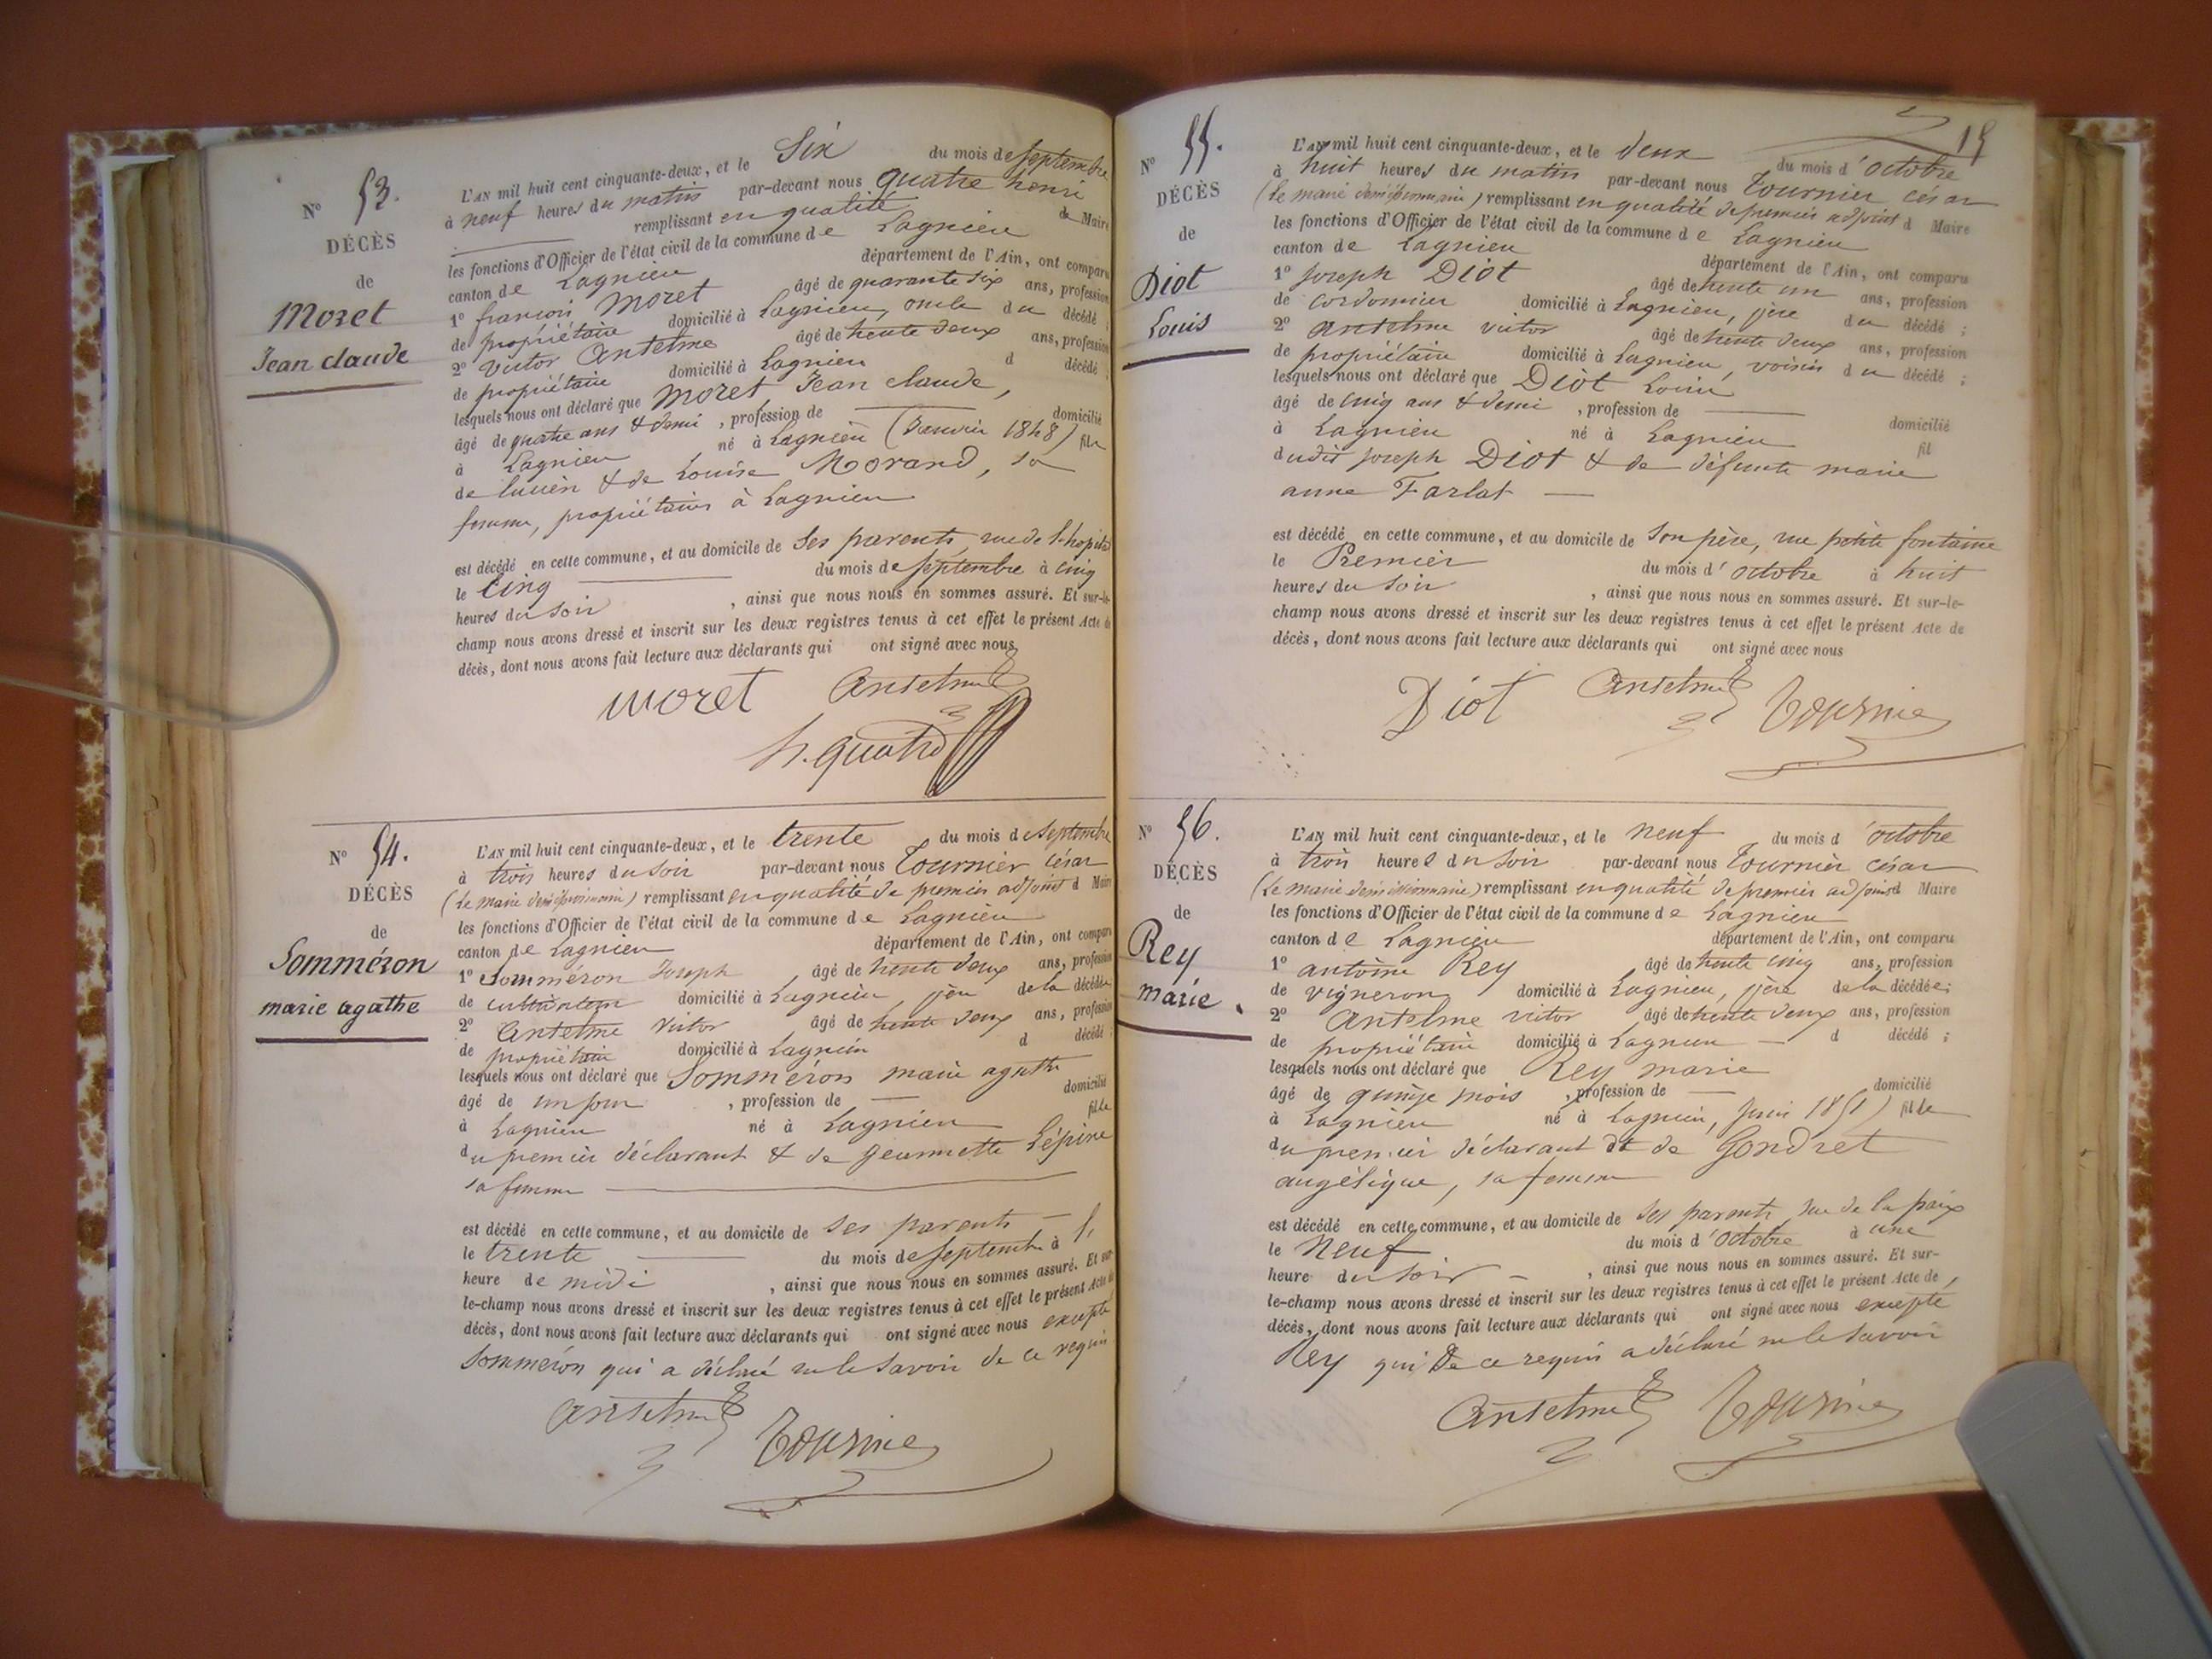 N° 53.
DÉCÈS
de
Moret
Jean claude
L'AN mil huit cent cinquante-deux, et le Six du mois de septembre
à neuf heures du matin par-devant nous quatre henri
remplissant en qualité de Maire
les fonctions d'Officier de l'état civil de la commune de Lagnieu
canton de Lagnieu département de l'Ain, ont comparu
1° françois Moret âgé de quarante six ans, profession
de propriétaire domicilié à Lagnieu, oncle du décédé ;
2° Victor Anselme âgé de trente deux ans, profession
de propriétaire domicilié à Lagnieu d décédé ;
lesquels nous ont déclaré que Moret Jean claude,
âgé de quatre ans & demi, profession de domicilié
à Lagnieu né à Lagnieu (Janvier 1848) fils
de lucien & de Louise Morand, sa
femme, propriétaires à Lagnieu
est décédé en cette commune, et au domicile de ses parents, rue de l'hopital
le Cinq du mois de septembre à cinq
heures du soir, ainsi que nous nous en sommes assuré. Et sur-le-
champ nous avons dressé et inscrit sur les deux registres tenus à cet effet le présent Acte de
décès, dont nous avons fait lecture aux déclarants qui ont signé avec nous
moret Anselme
h. quatre
N° 54.
DÉCÈS
de
Somméron
marie agathe
L'AN mil huit cent cinquante-deux, et le trente du mois de septembre
à trois heures du soir par-devant nous Tournier césar
(le maire démissionnaire) remplissant en qualité de premier adjoint d Maire
les fonctions d'Officier de l'état civil de la commune de Lagnieu
canton de Lagnieu département de l'Ain, ont comparu
1° Somméron Joseph âgé de trente deux ans, profession
de cultivateur domicilié à Lagnieu, père de la décédée
2° Anselme Victor âgé de trente deux ans, profession
de propriétaire domicilié à Lagnieu d décédé ;
lesquels nous ont déclaré que Somméron marie agathe
âgé de un jour, profession de domicilié
à Lagnieu né à Lagnieu fille
du premier déclarant & de Jeannette Lépine
sa femme
est décédé en cette commune, et au domicile de ses parents
le trente du mois de septembre à l'
heure de midi, ainsi que nous nous en sommes assuré. Et sur-
le-champ nous avons dressé et inscrit sur les deux registres tenus à cet effet le présent Acte de
décès, dont nous avons fait lecture aux déclarants qui ont signé avec nous excepté
Somméron qui a déclaré ne le savoir de ce requis
Anselme Tournier
15
N° 55.
DÉCÈS
de
Diot
Louis
L'AN mil huit cent cinquante-deux, et le deux du mois d'octobre
à huit heures du matin par-devant nous Tournier césar
(le maire démissionnaire) remplissant en qualité de premier adjoint d Maire
les fonctions d'Officier de l'état civil de la commune de Lagnieu
canton de Lagnieu département de l'Ain, ont comparu
1° Joseph Diot âgé de trente un ans, profession
de cordonnier domicilié à Lagnieu, père du décédé ;
2° Anselme victor âgé de trente deux ans, profession
de propriétaire domicilié à Lagnieu, voisin du décédé ;
lesquels nous ont déclaré que Diot Louis
âgé de cinq ans & demi, profession de domicilié
à Lagnieu né à Lagnieu fil
dudit joseph Diot & de défunte marie
anne Farlat
est décédé en cette commune, et au domicile de son père, rue petite fontaine
le Premier du mois d'octobre à huit
heures du soir, ainsi que nous nous en sommes assuré. Et sur-le-
champ nous avons dressé et inscrit sur les deux registres tenus à cet effet le présent Acte de
décès, dont nous avons fait lecture aux déclarants qui ont signé avec nous
Diot Anselme Tournier
N° 56.
DÉCÈS
de
Rey
marie.
L'AN mil huit cent cinquante-deux, et le neuf du mois d'octobre
à trois heures du soir par-devant nous Tournier césar
(le maire démissionnaire) remplissant en qualité de premier adjoint d Maire
les fonctions d'Officier de l'état civil de la commune de Lagnieu
canton de Lagnieu département de l'Ain, ont comparu
1° antoine Rey âgé de trente cinq ans, profession
de vigneron domicilié à Lagnieu, père de la décédée ;
2° Anselme victor âgé de trente deux ans, profession
de propriétaire domicilié à Lagnieu d décédé ;
lesquels nous ont déclaré que Rey marie
âgé de quinze mois, profession de domicilié
à Lagnieu né à Lagnieu, Juin 1851) fille
du premier déclarant et de Gondret
angélique, sa femme
est décédé en cette commune, et au domicile de ses parents rue de la paix
le Neuf du mois d'octobre à une
heure du soir, ainsi que nous nous en sommes assuré. Et sur-
le-champ nous avons dressé et inscrit sur les deux registres tenus à cet effet le présent Acte de
décès, dont nous avons fait lecture aux déclarants qui ont signé avec nous excepté
Rey qui de ce requis a déclaré ne le savoir
Anselme Tournier